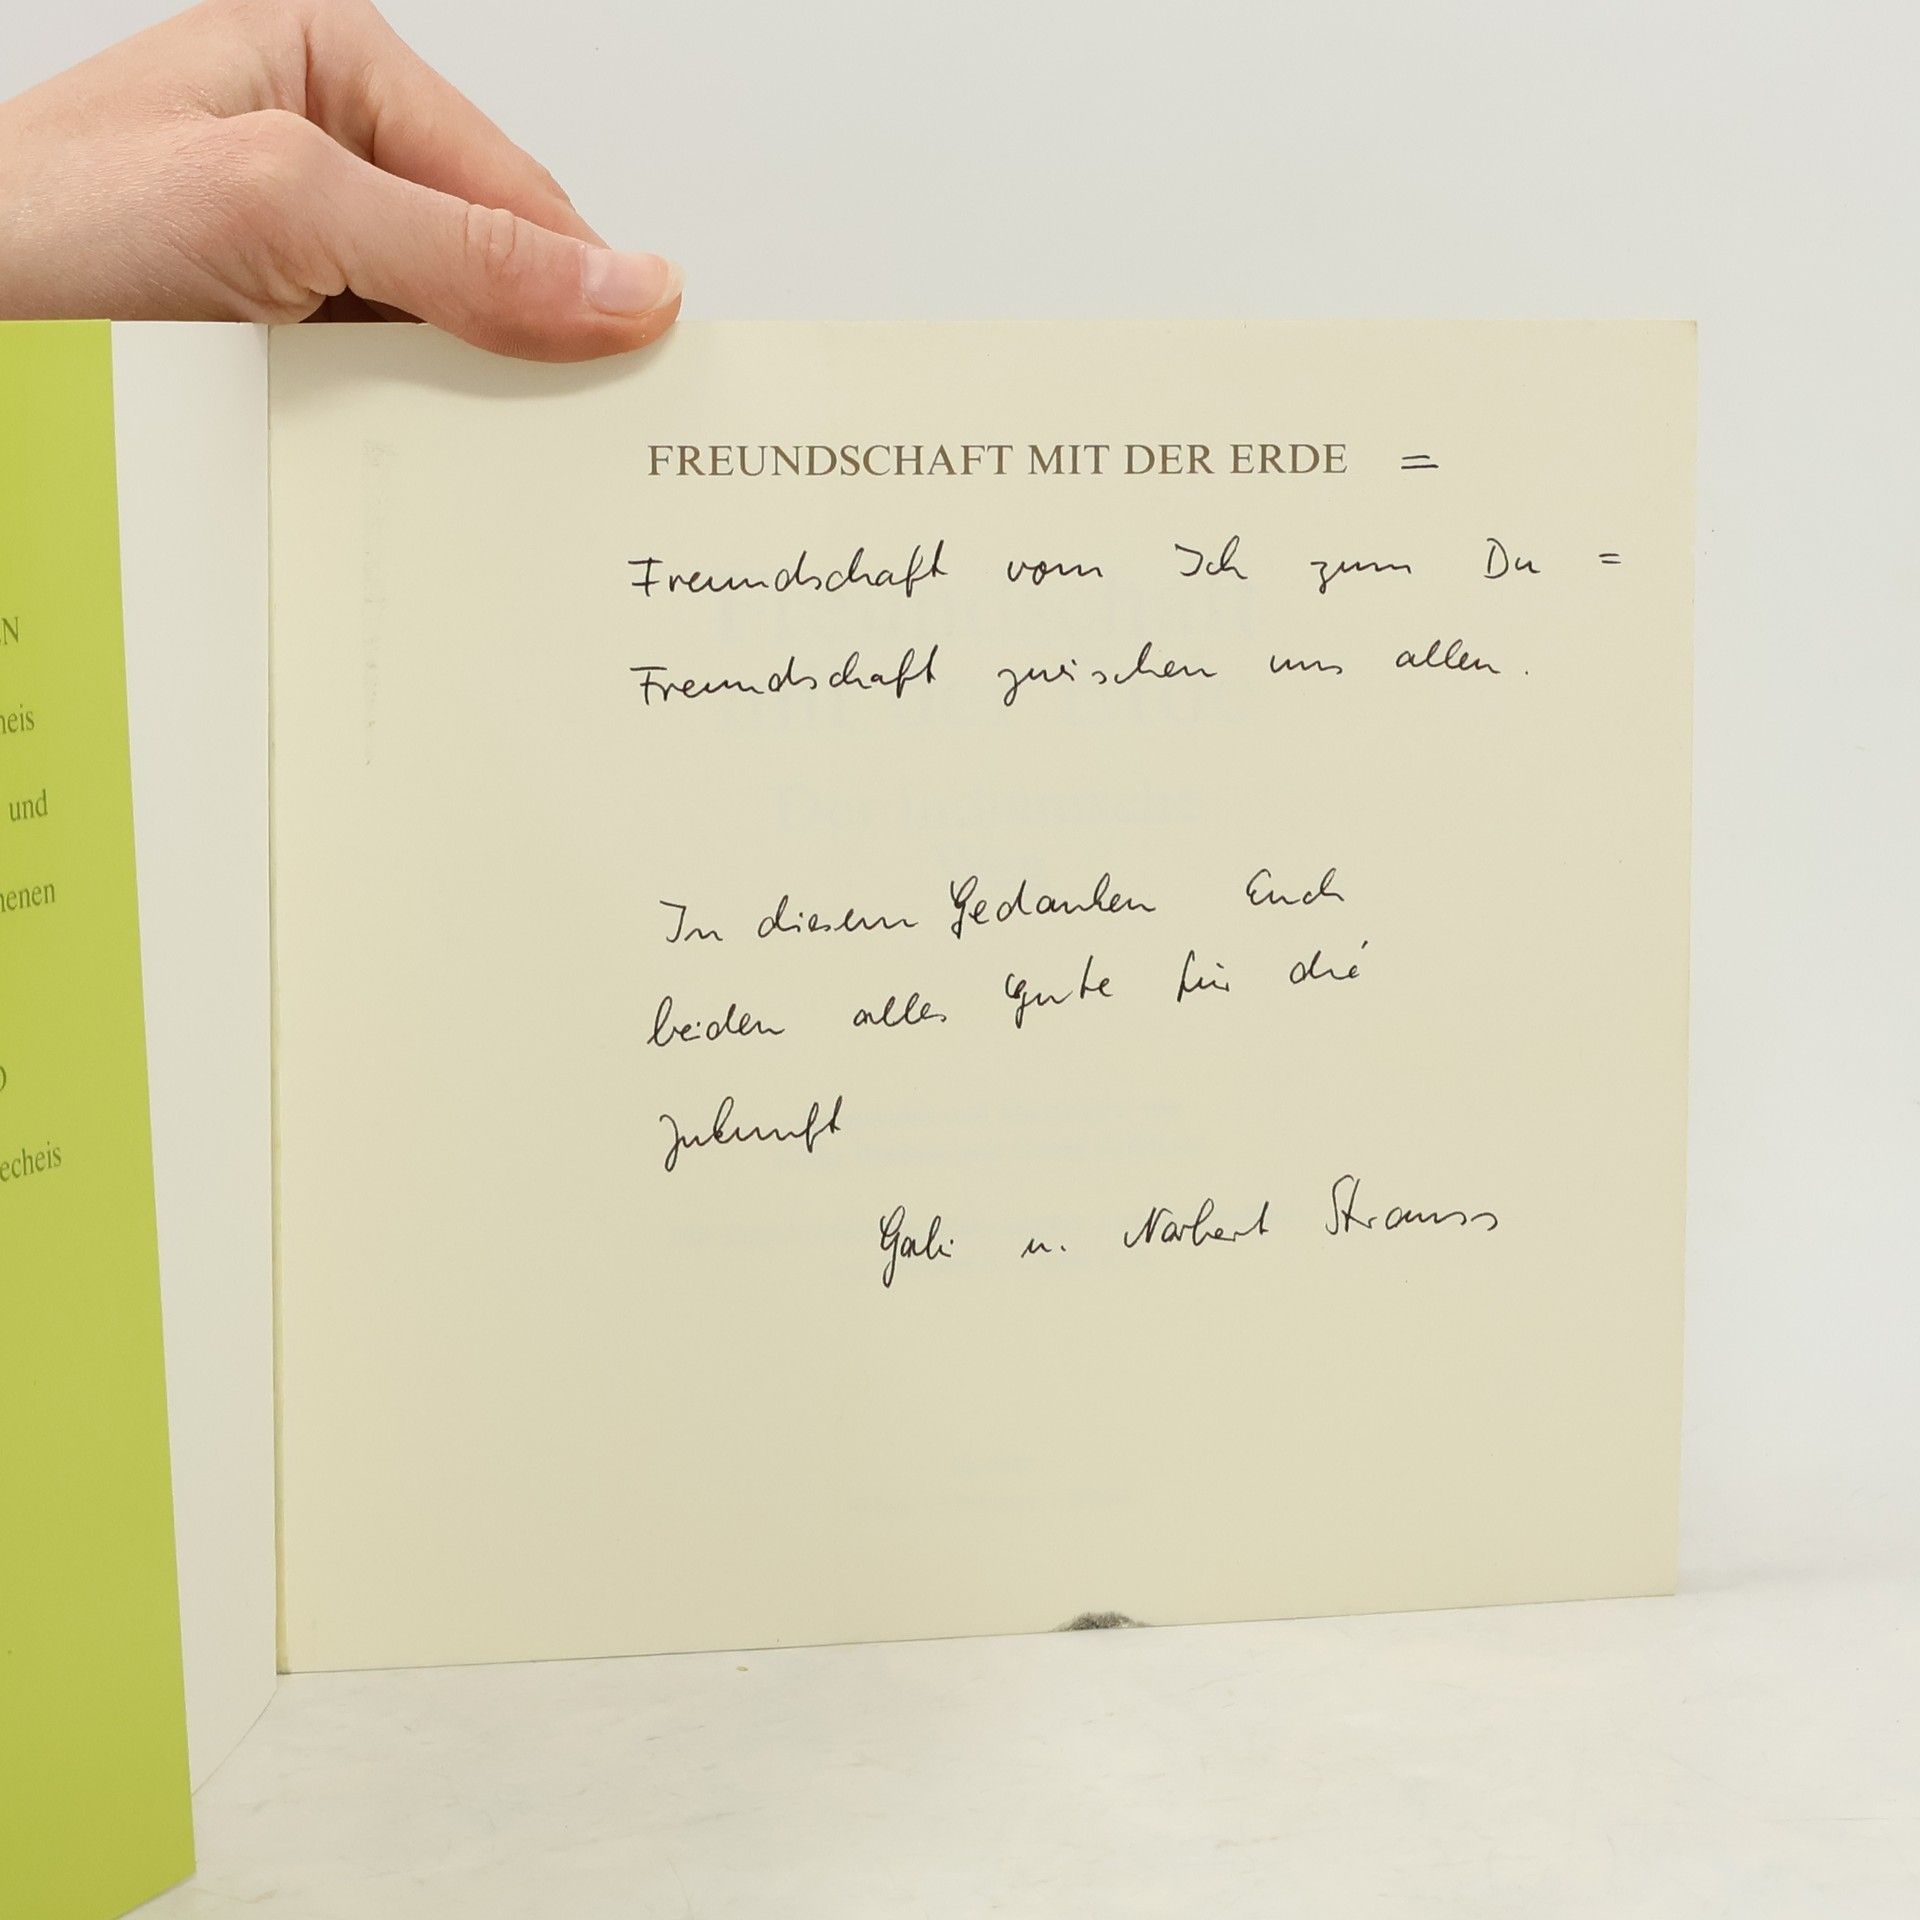 EN
heis
und
henen
echeis
FREUNDSCHAFT MIT DER ERDE =
Freundschaft vom Ich zum Du =
Freundschaft zwischen uns allen.
In diesem Gedanken Euch
beiden alles Gute für die
Zukunft
Gabi u. Norbert Strauss